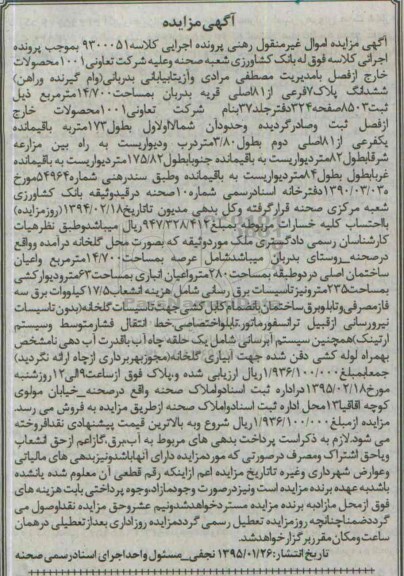 آگهی مزایده
آگهی مزایده اموال غیرمنقول رهنی پرونده اجرایی کلاسه ۹۳۰۰۰۵۱ بموجب پرونده
اجرائی کلاسه فوق له بانک کشاورزی شعبه صحنه وعلیه شرکت تعاونی ۱۰۰۱ محصولات
خارج ازفصل بامدیریت مصطفی مرادی وآزیتابیابانی بدربانی(وام گیرنده وراهن)
ششدانگ پلاک ۷فرعی از۸۱اصلی قریه بدربان بمساحت۱۴/۷۰۰مترمربع ذیل
ثبت۸۵۰۳صفحه۳۲۴دفترجلد۳۷بنام شرکت تعاونی۱۰۰۱محصولات خارج
ازفصل ثبت وصادرگردیده وحدودآن شمالااولاول بطول۱۷۳متربه باقیمانده
یکفرعی از۸۱اصلی دوم بطول۳/۸۰متردرب ودیواریست به راه بین مزارعه
شرقابطول۸۲متردیواریست به باقیمانده جنوبابطول۱۷۵/۸۲متردیواریست به باقیمانده
غربابطول بطول۸۴متردیواریست به باقیمانده وطبق سندرهنی شماره۵۴۹۶۴مورخ
۱۳۹۰/۰۳/۰۲دفترخانه اسنادرسمی شماره۱۰صحنه درقیدوثیقه بانک کشاورزی
شعبه مرکزی صحنه قرارگرفته وکل بدهی مدیون تاتاریخ۱۳۹۴/۰۲/۱۸(روزمزایده)
بااحتساب کلیه خسارات مربوطه بمبلغ۹۴۷/۳۲۸/۴۱۲ریال میباشدوطبق نظرهیات
کارشناسان رسمی دادگستری ملک موردوثیقه که بصورت محل گلخانه درآمده وواقع
درصحنه_روستای بدربان میباشدشامل عرصه بمساحت۱۴/۷۰۰مترمربع واعیان
ساختمان اصلی دردوطبقه بمساحت۲۸۰متررواعیان انباری بمساحت۶۳مترودیوارکشی
بمساحت۲۳۵مترونیزتاسیسات برق رسانی شامل هزینه انشعاب۱۷/۵کیلووات برق سه
فازمصرفی وتابلوبرق ساختمان بانضمام کابل کشی جهت تاسیسات گلخانه(بدون تاسیسات
نیرورسانی ازقبیل ترانسفورماتور،تابلواختصاصی،خط انتقال فشارمتوسط وسیستم
ارتینک)همچنین سیستم آبرسانی شامل یک حلقه چاه آب باقدرت آب دهی نامشخص
بهمراه لوله کشی دفن شده جهت آبیاری گلخانه(مجوزبهره برداری ازچاه ارائه نگردید)
جمعابمبلغ۱/۹۳۶/۱۰۰/۰۰۰ریال ارزیابی شده و،پلاک فوق ازساعت۹الی۱۲روزشنبه
مورخ۱۳۹۵/۰۲/۱۸دراداره ثبت اسنادواملاک صحنه واقع درصحنه_خیابان مولوی
کوچه اقاقیا۱۳محل اداره ثبت اسنادواملاک صحنه ازطریق مزایده به فروش می رسد.
مزایده ازمبلغ۱/۹۳۶/۱۰۰/۰۰۰ریال شروع وبه بالاترین قیمت پیشنهادی نقدافروخته
می شود.لازم به ذکراست پرداخت بدهی های مربوط به آب،برق،گازاعم ازحق انشعاب
ویاحق اشتراک ومصرف درصورتی که موردمزایده دارای آنهاباشدونیزبدهی های مالیاتی
وعوارض شهرداری وغیره تاتاریخ مزایده اعم ازاینکه رقم قطعی آن معلوم شده یانشده
باشدبه عهده برنده مزایده است ونیزدرصورت وجودمازاد،وجوه پرداختی بابت هزینه های
فوق ازمحل مازادبه برنده مزایده مستردخواهدشدونیم عشروحق مزایده نقداوصول می
گردد،ضمناچنانچه روزمزایده تعطیل رسمی گرددمزایده روزاداری بعدازتعطیلی درهمان
ساعت ومکان مقرربرگزارخواهدشد.
تاریخ انتشار:۱۳۹۵/۰۱/۲۶ نجفی_مسئول واحداجرای اسنادرسمی صحنه